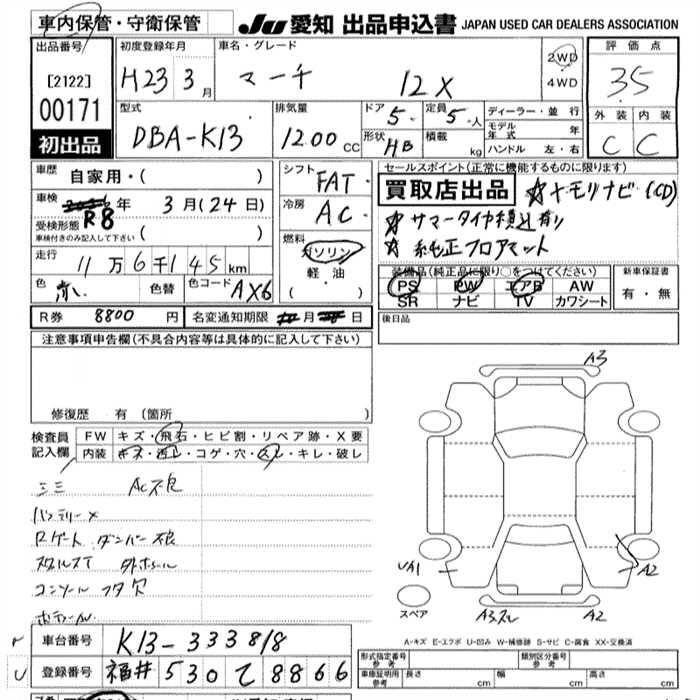 車内保管・守衛保管
JU 愛知 出品申込書 JAPAN USED CAR DEALERS ASSOCIATION
出品番号
[2122]
00171
初出品
初度登録年月
H23 3月
車名・グレード
マーチ 12X
2WD
4WD
評価点
3.5
外装 内装
C C
型式
DBA-K13
排気量
1200 CC
ドア 5 定員 5 人
形状 HB 積載 kg
ディーラー・並行
モデル年式 年
ハンドル 左・右
車歴 自家用・( )
車検 R8年 3月(24日)
受検形態 ( )
車検付きのみ記入して下さい
走行 11万6千145km
色 赤 色替 色コード AX6
シフト FAT
冷房 AC
燃料
ガソリン
軽油
( ・ )
R券 8800 円 名変通知期限 月 日
セールスポイント(正常に機能するものに限ります)
買取店出品 ☆メモリナビ(CD)
☆サマータイヤ積込有り
☆純正フロアマット
装備品(純正品に限り○をつけてください)
PS PW エアB AW
SR ナビ TV カワシート
新車保証書
有・無
後日品
注意事項申告欄(不具合内容等は具体的に記入して下さい)
修復歴 有(箇所 )
検査員記入欄
FW キズ・飛石・ヒビ割・リペア跡・X要
内装 キズ・汚レ・コゲ・穴・スレ・キレ・破レ
AC不良
バッテリーX
Rゲート ダンパー不良
コンソール フタ欠
A3
UA1
A2
スペア
A3スレ A2
A-キズ E-エクボ U-凹み W-補修跡 S-サビ C-腐食 XX-交換済
車台番号 K13-333818
登録番号 福井 530 て 8866
形式指定番号 参考 類別区分番号 参考
車庫証明用 参考 長さ cm 幅 cm 高さ cm